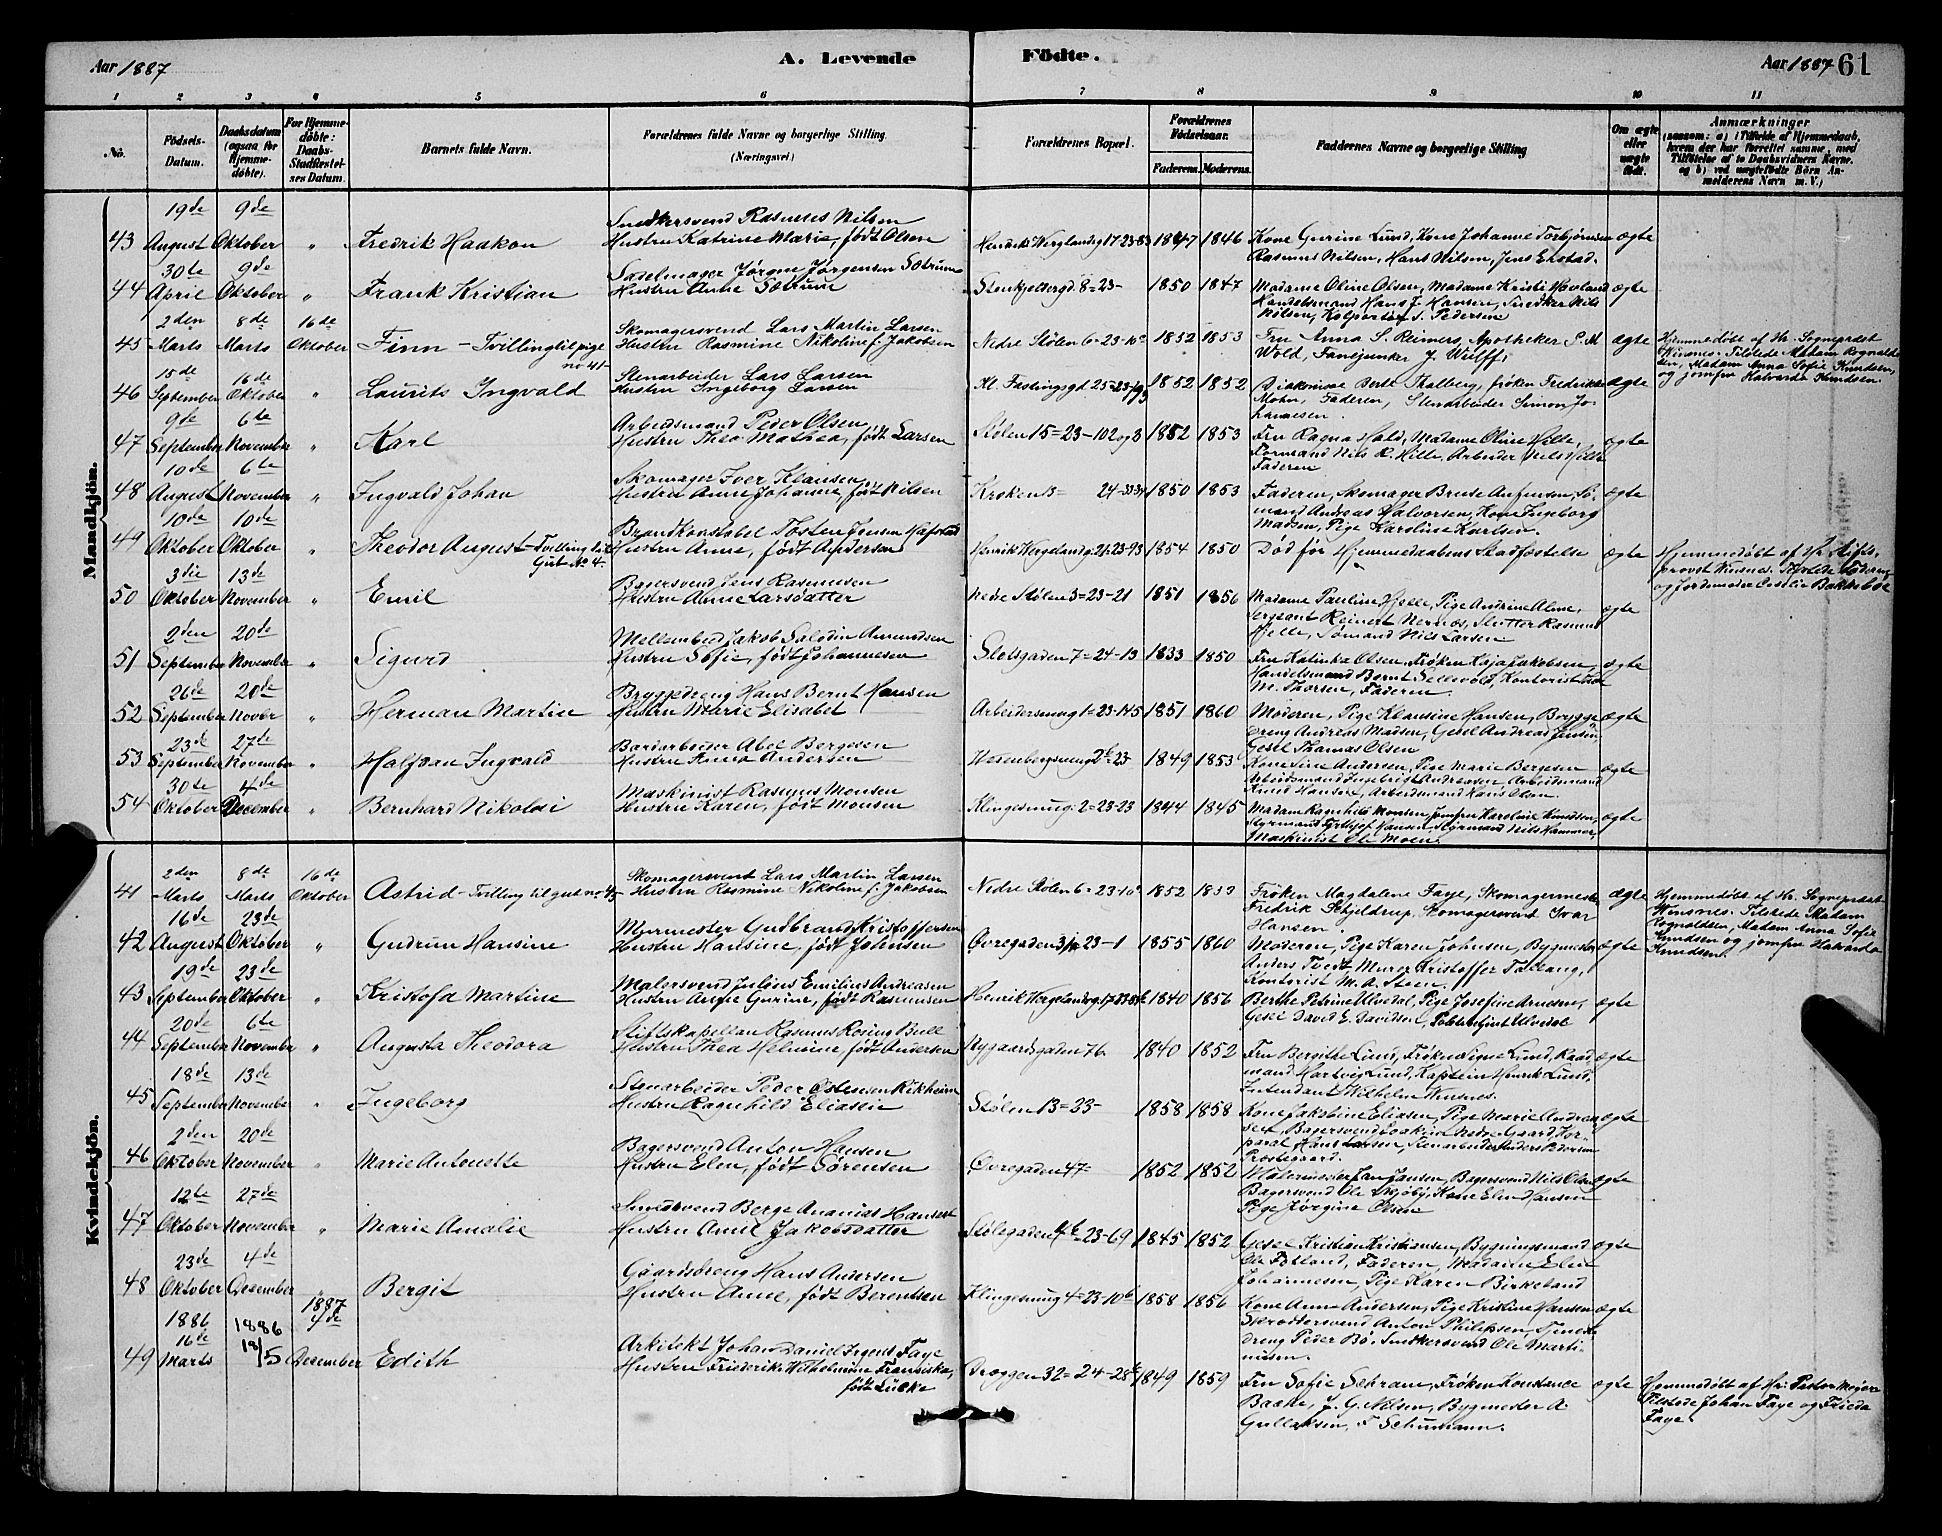 Aar 1887
A. Levende Födte.
Aar 1887 61
1 2 3 4 5 6 7 8 9 10 11
No.
Födsels-Datum.
Daabsdatum (ogsaa for Hjemmedöbte).
For Hjemmedöbte: Daabs-Stadfæstelses Datum.
Barnets fulde Navn.
Forældrenes fulde Navne og borgerlige Stilling. (Næringsvei)
Forældrenes Bopæl.
Forældrenes Födselsaar.
Faderens. Moderens.
Faddernes Navne og borgerlige Stilling
Om ægte eller uægte födt.
Anmærkninger
(saasom: a) i Tilfælde af Hjemmedaab, hvem der har forrettet samme, med Tilföielse af to Daabsvidners Navne, og b) ved uægtefödte Börn Anmelderens Navn m. V.)
Mandkjön.
43 19de August 9de Oktober " Fredrik Haakon
Snedkersvend Rasmus Nilsen
Hustru Katrine Marie, født Olsen
1847 1846
Kone Gurine Lund, Kone Johanne Torbjørnsen
Rasmus Nilsen, Hans Nilsen, Jens Ekstad.
ægte
44 30te April 9de Oktober " Frank Kristian
Sadelmager Jørgen Jørgensen Sætrum
Hustru Anne Sætrum
Stenkjeldergd. 8=23- 1850 1847
Madame Oline Olsen, Madame Kristi Hovland
Handelsmand Hans J. Hansen, Snedker Nils
Nilsen, Kolportør S. Pedersen
ægte
45 2den Marts 8de Marts 16de Oktober Finn - Tvilling til pige no 41-
Skomagersvend Lars Martin Larsen
Hustru Rasmine Nikoline f. Jakobsen
Nedre Stølen 6-23-10 1852 1853
Fru Anna S. Reimers, Apotheker S. M
Wold, Fanejunker J. Wulff.
ægte
Hjemmedøbt af Hr. Sognepræst
Winsnes. Tilstede Madam Rognald-
sen, Madam Anna Sofie Knudsen,
og jomfru Halvarda Knudsen.
46 15de September 16de Oktober " Laurits Ingvald
Stenarbeider Lars Larsen
Hustru Ingeborg Larsen
1852 1852
Diakonisse Berte Thalberg, frøken Fredrikke
Mohn, Faderen, Stenarbeider Simon Jo-
hannesen.
ægte
47 9de September 6te November " Karl
Arbeidsmand Peder Olsen
Hustru Thea Mathea, født Larsen
Stølen 15=23-102 og 3 1852 1853
Fru Ragna Hald, Madame Oline Hille,
Formand Nils R. Hille, Arbeider Nils Hille
Faderen
ægte
48 10de August 6te November " Ingvald Johan
Skomager Iver Klausen
Hustru Anne Johanne, født Nilsen
Kroken 13= 1850 1853
Faderen, Skomager Brude Anfinsen, Sø-
mand Andreas Halvorsen, Kone Ingeborg
Madsen, Pige Karoline Karlsen.
ægte
49 10de Oktober 10de Oktober " Theodor August - Tvilling til Gut No 4-
Brandkonstabel Tosten Jensen Hafstad
Hustru Anne, født Andersen
1854 1850
Død før Hjemmedaabens Stadfæstelse
ægte
Hjemmedøbt af Hr. Stifts-
provst Winsnes. Tilstede Faderen
og Jordemoder Cecilie Bakkebøe
50 3die Oktober 13de November " Emil
Bagersvend Jens Rasmussen
Hustru Anne Larsdatter
Nedre Stølen 3=23-21 1851 1856
Madame Pauline Hjelle, Pige Andrine Alme,
Sergeant Reinert Nernes, Slutter Rasmus
Hjelle, Sømand Nils Larsen
ægte
51 2den September 20de November " Sigurd
Mellembud Jakob Salodin Amundsen
Hustru Sofie, født Johannesen
Slotsgaden 7=24-13 1833 1850
Fru Katinka Olsen, Frøken Kaja Jakobsen,
Handelsmand Bernt Sellevold, Kontorist
M. Thorsen, Faderen.
ægte
52 26de September 20de Novbr " Herman Martin
Bryggedreng Hans Bernt Hansen
Hustru Marie Elisabet
Arbeidersmug 1=23-145 1851 1860
Moderen, Pige Klausine Hansen, Brygge-
dreng Andreas Madsen, Gesel Andreas Jensen
Gesel Thomas Olsen
ægte
53 23de September 27de November " Halfdan Ingvald
Bordarbeider Abel Bergesen
Hustru Anna Andersen
Wesenbergsmug 2b=23 1849 1853
Kone Sine Andersen, Pige Marie Bergesen
Arbeidsmand Ingebrigt Andreassen, Arbeidsmand
Knud Hansen, Arbeidsmand Hans Olsen.
ægte
54 30te Oktober 4de December " Bernhard Nikolai
Maskinist Rasmus Monsen
Hustru Karen, født Monsen
Klingesmug: 2=23-23 1844 1845
Madam Ragnhild Monsen, jomfru Karoline Knudsen,
Styrmand Fritjof Hansen, Styrmand Nils Hammer,
Maskinist Ole Moen.
ægte
Kvindekjön.
41 2den Marts 8de Marts 16de Oktober Astrid - Tvilling til gut no 45
Skomagersvend Lars Martin Larsen
Hustru Rasmine Nikoline f. Jakobsen
Nedre Stølen 6=23-10 1852 1853
Frøken Magdalene Faye, Skomagermester
Fredrik Schjeldrup, Skomagersvend Ivar
Hansen
ægte
Hjemmedøbt af Hr. Sognepræst
Winsnes. Tilstede Madam
Rognaldsen, Madam Anna Sofie
Knudsen og jomfru Halvarda
Knudsen.
42 16de August 23de Oktober " Gudrun Hansine
Murmester Gudbrand Kristoffersen
Hustru Hansine, født Johnsen
1855 1860
Moderen, Pige Karen Johnsen, Bygmester
Anders Tvedt, Murer Kristoffer Tallang,
Kontorist M. A. Steen
ægte
43 19de September 23de Oktober " Kristofa Martine
Malersvend Julius Emilius Andreasen
Hustru Anne Gurine, født Rasmussen
1840 1856
Berthe Petrine Ulvedal, Pige Josefine Arnesen,
Gesel David E. Davidsen,
ægte
44 20de September 6te November " Augusta Theodora
Stiftskapellan Rasmus Rosing Bull
Hustru Thea Helmine, født Andersen
Nygaardsgaden 7b 1840 1852
Fru Bergithe Lund, Frøken Signe Lund, Raad-
mand Hartvig Lund, Kaptein Henrik Lund,
Intendant Wilhelm Winsnes.
ægte
45 18de September 13de November " Ingeborg
Stenarbeider Peder Ostensen Rikheim
Hustru Ragnhild Eliassen
Stølen 13=23- 1858 1858
Kone Jakobine Eliasen, Pige Marie Andrea-
sen, Bagersvend Joakim Nedre Gaard, Kor-
poral Hans Larsen, Stenarbeider Anders Pedersen
Prostegaard.
ægte
46 2den Oktober 20de November " Marie Antonette
Bagersvend Anton Hansen
Hustru Elen, født Sørensen
Øvregaden 47- 1852 1852
Malermester Jan Jansen, Bagersvend Nils Olsen
Bagersvend Ole Skjøby, Kone Elen Hansen
Pige Jørgine Olsen
ægte
47 12te Oktober 27de November " Marie Amalie
Smedsvend Berge Ananias Hansen
Hustru Anne Jakobsdatter
Stølegaden 4b=23-69 1845 1852
Gesel Kristian Kristiansen, Bygningsmand
Ole Fotland, Faderen, Madame Elen
Johannesen, Pige Karen Birkeland
ægte
48 23de Oktober 4de Desember " Bergit
Gaardsdreng Hans Andersen
Hustru Anne, født Berentsen
Klingesmug 4=23-106 1858 1856
Kone Anne Andersen, Pige Kristine Hansen
Skrædersvend Anton Philipsen, Tjeneste-
dreng Peder Bø. Snedkersvend Ole Marti-
nussen.
ægte
49 1886 16de Marts 1886 18/5 1887 4de Desember Edith
Arkitekt Johan Daniel Jrgens Faye
Hustru Friederike Wilhelmine Franziska,
født Lücke
Dræggen 32=24-28b 1849 1859
Fru Sofie Schram, Frøken Konstance
Baake, J. G. Nilsen, Bygmester A
Gullaksen, F Schumann.
ægte
Hjemmedøbt af Hr. Pastor Meyer
Tilstede Johan Faye og Frieda
Faye